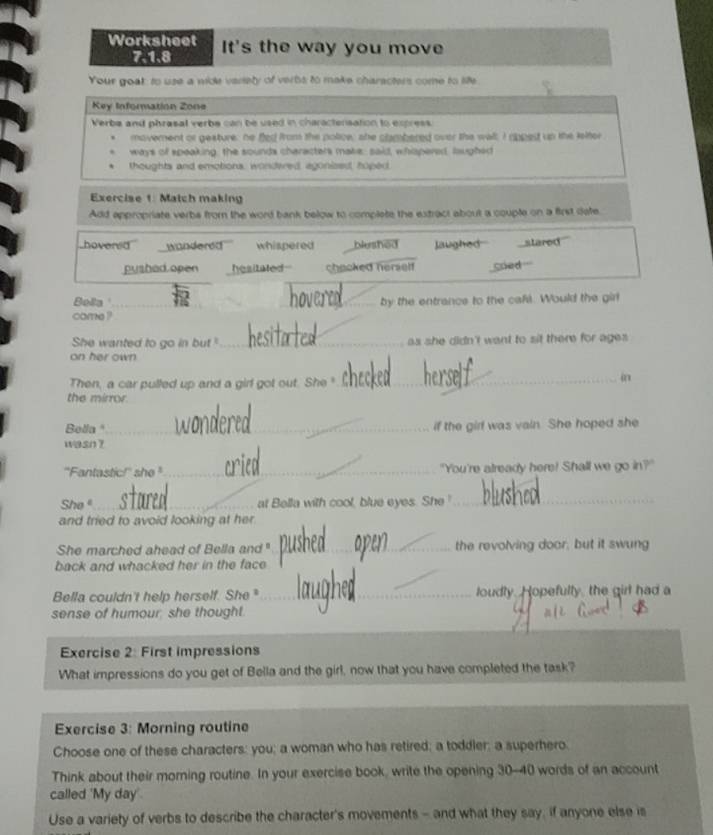 Worksheet
7.1.8
It's the way you move
Your goal: to use a wide variety of verbs to make characters come to life.
Key Information Zone
Verbs and phrasal verbs can be used in characterisation to express:
• movement or gesture: he fled from the police; she clambered over the wall; I ripped up the letter
• ways of speaking, the sounds characters make: said, whispered, laughed
• thoughts and emotions: wondered, agonised, hoped.
Exercise 1: Match making
Add appropriate verbs from the word bank below to complete the extract about a couple on a first date.
hovered wondered whispered blushed laughed stared
pushed open hesitated checked herself cried
Bella ¹ hovered by the entrance to the café. Would the girl
come?
She wanted to go in but ² hesitarted as she didn't want to sit there for ages
on her own.
Then, a car pulled up and a girl got out. She ³ checked herself in
the mirror.
Bella ⁴ wondered if the girl was vain. She hoped she
wasn't.
"Fantastic!" she ⁵ cried "You're already here! Shall we go in?"
She ⁶ stared at Bella with cool, blue eyes. She ⁷ blushed
and tried to avoid looking at her.
She marched ahead of Bella and ⁸ pushed open the revolving door, but it swung
back and whacked her in the face.
Bella couldn't help herself. She ⁹ laughed loudly. Hopefully, the girl had a
sense of humour, she thought.
all Good!
Exercise 2: First impressions
What impressions do you get of Bella and the girl, now that you have completed the task?
Exercise 3: Morning routine
Choose one of these characters: you; a woman who has retired; a toddler; a superhero.
Think about their morning routine. In your exercise book, write the opening 30–40 words of an account
called 'My day'.
Use a variety of verbs to describe the character's movements – and what they say, if anyone else is